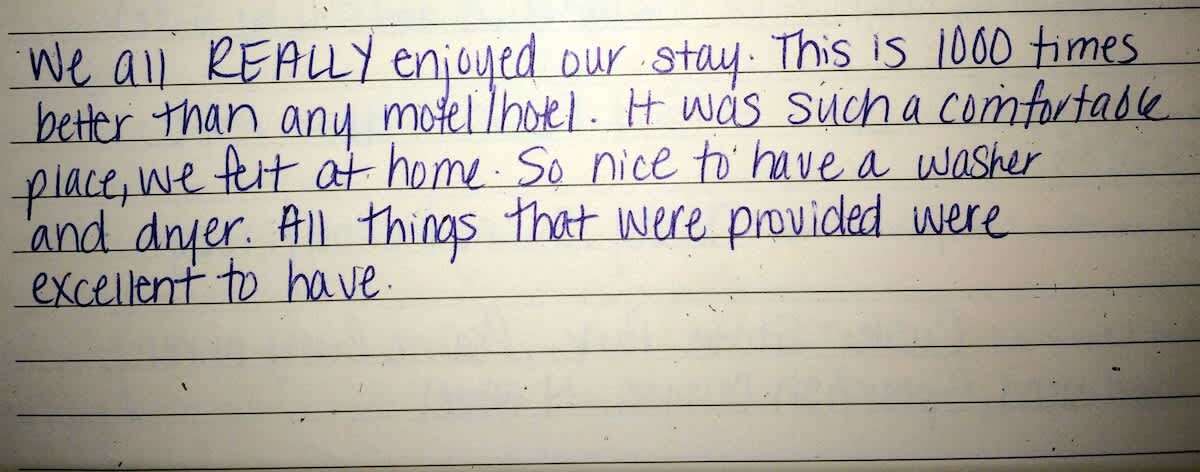 We all REALLY enjoyed our stay. This is 1000 times
better than any motel/hotel. It was such a comfortable
place, we felt at home. So nice to have a washer
and dryer. All things that were provided were
excellent to have.